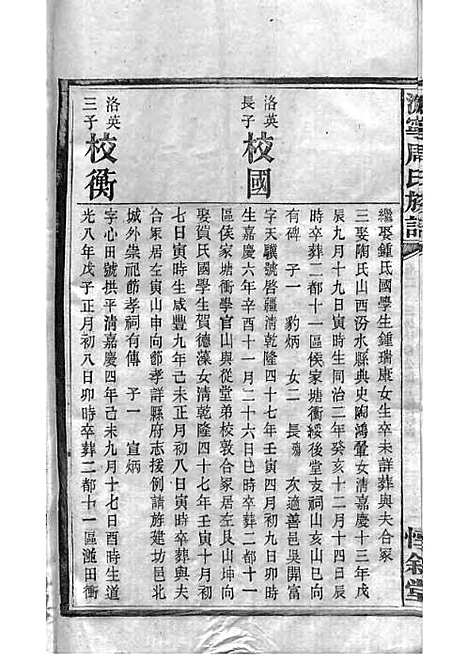 寧周氏族譜
惇敘堂
繼娶鍾氏國學生鍾瑞康女生卒未詳葬與夫合冢
三娶陶氏山西汾水縣典史陶鴻鼙女清嘉慶十三年戊
辰九月十九日寅時生同治二年癸亥十二月十四日辰
時卒葬二都十一區侯家塘衝綏後堂支祠山亥山巳向
有碑 子一 豹炳 女二 長 次適善邑吳開富
洛英長子 校國
字天驥號啓疆清乾隆四十七年壬寅四月初九日卯時
生嘉慶六年辛酉十一月二十六日巳時卒葬二都十一
區侯家塘衝學官山與從堂弟校敦合冢居左艮山坤向
娶賀氏國學生賀德藻女清乾隆四十七年壬寅十月初
七日寅時生咸豐九年己未正月初八日寅時卒葬與夫
合冢居左寅山申向節孝詳縣府志援例請旌建坊邑北
城外崇祀節孝祠有傳 子一 宣炳
洛英三子 校衡
字心田號拱平清嘉慶四年己未九月十七日酉時生道
光八年戊子正月初八日卯時卒葬二都十一區 田衝